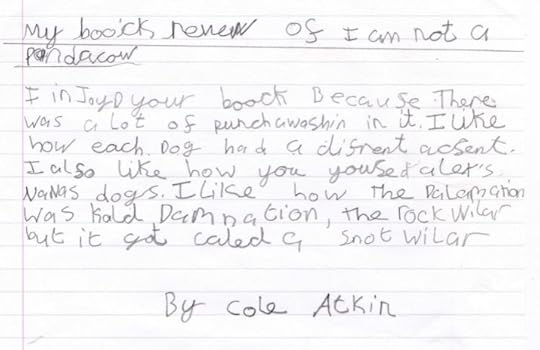 My booick renew of I am not a
Pandacow
I inJoyD your boock Because There
was a lot of punchawashin in it. I like
how each Dog had a difrent acsent.
I also like how you yousedalex's
NaNas dogs. I Like how The Dalamation
was kald Damnation, the rock wilar
but it got caled a snot wilar
By Cole Atkin